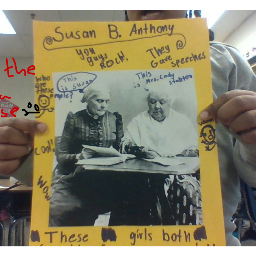 Susan B. Anthony
you guys ROCK!
They Gave speeches
the
who are these people?
This is susan
This is Mrs. Cady stanton
cool!
wow
These girls both